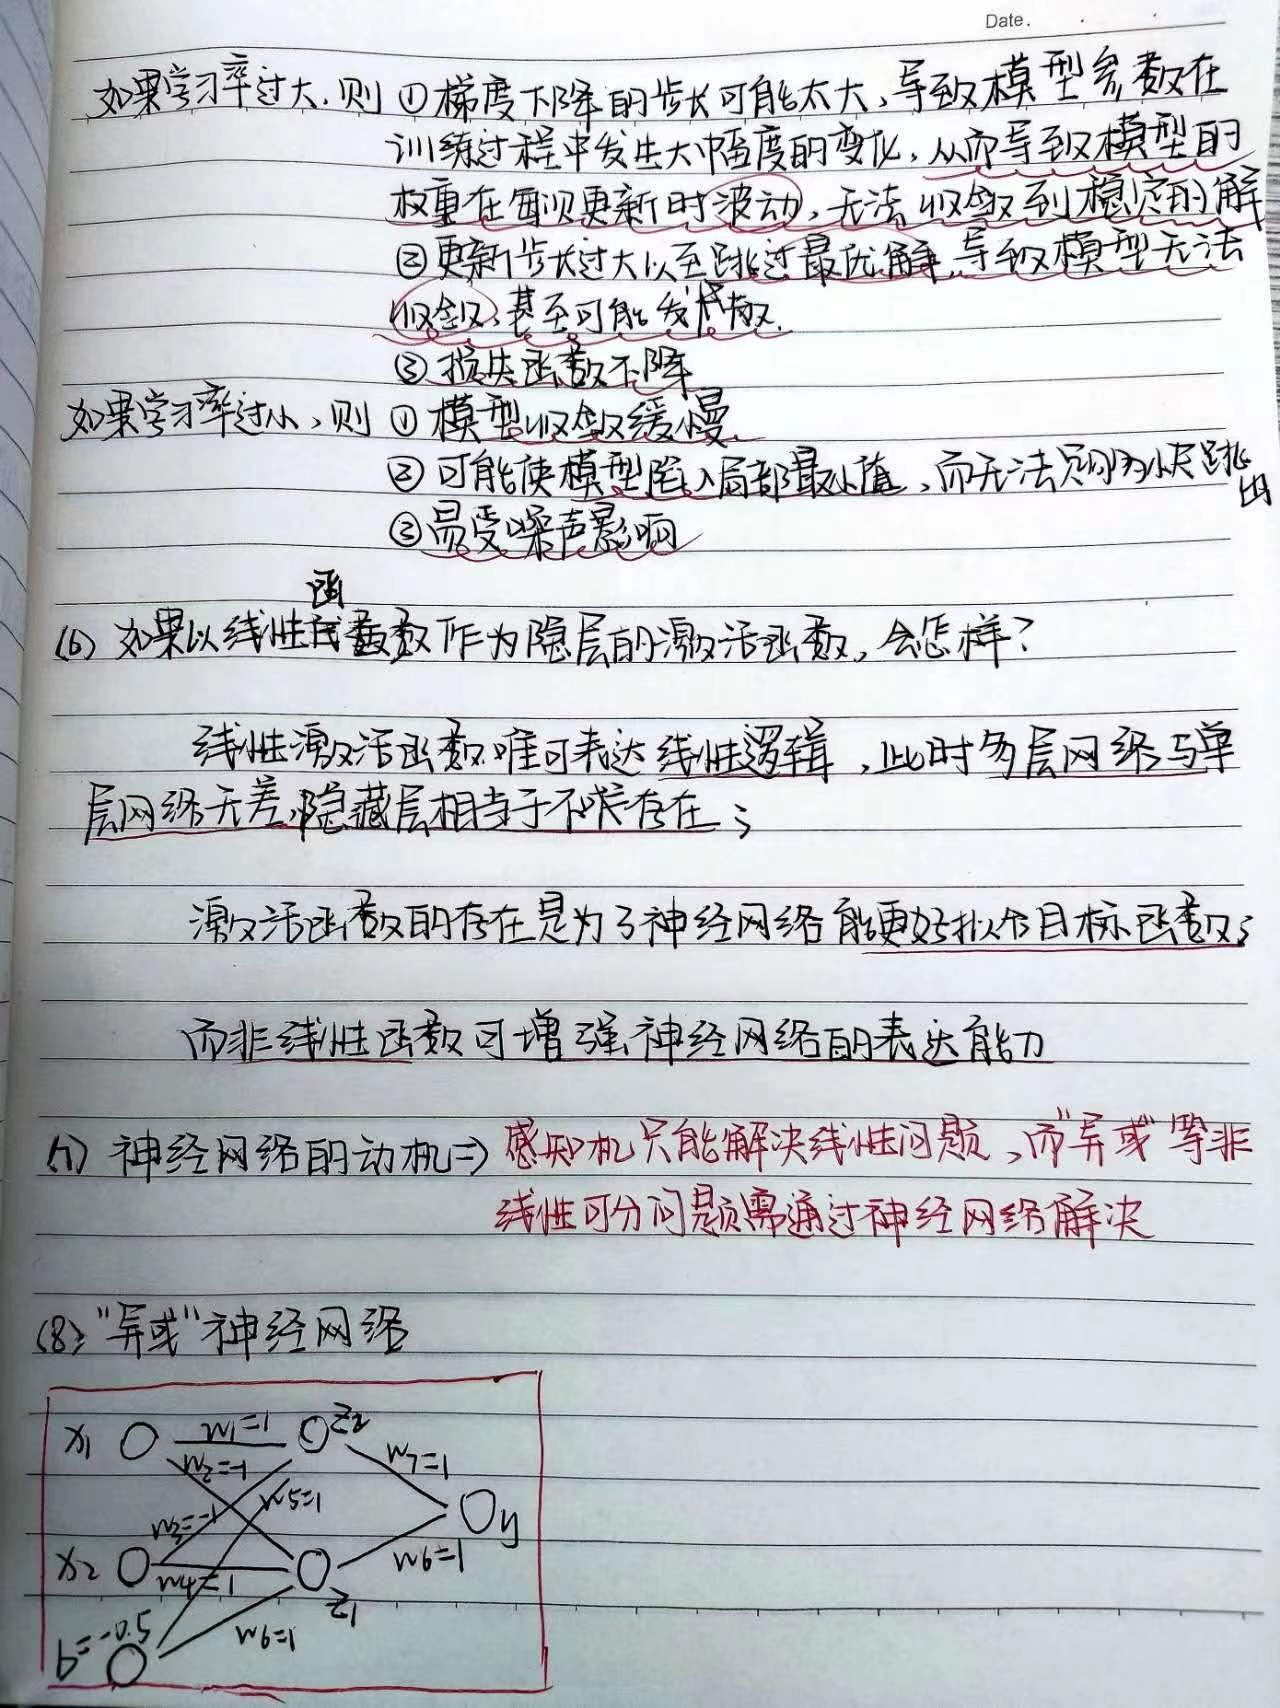 Date.
如果学习率过大，则 ①梯度下降的步长可能太大，导致模型参数在
训练过程中发生大幅度的变化，从而导致模型的
权重在每次更新时波动，无法收敛到稳定的解
②更新步长过大以至跳过最优解，导致模型无法
收敛，甚至可能发散
③损失函数不降
如果学习率过小，则 ①模型收敛缓慢
②可能使模型陷入局部最小值，而无法跳
出
③易受噪声影响
函
(6) 如果以线性数作为隐层的激活函数，会怎样？
线性激活函数唯可表达线性逻辑，此时多层网络与单
层网络无差，隐藏层相当于不存在；
激活函数的存在是为了神经网络能更好拟合目标函数；
而非线性函数可增强神经网络的表达能力
(7) 神经网络的动机⇒ 感知机只能解决线性问题，而"异或"等非
线性可分问题需通过神经网络解决
(8) "异或"神经网络
x1 w1=1 z2
w2=-1 w7=1
w3=-1 w5=1 y
x2 w4=1 w6=1
z1
b=-0.5 w6=1